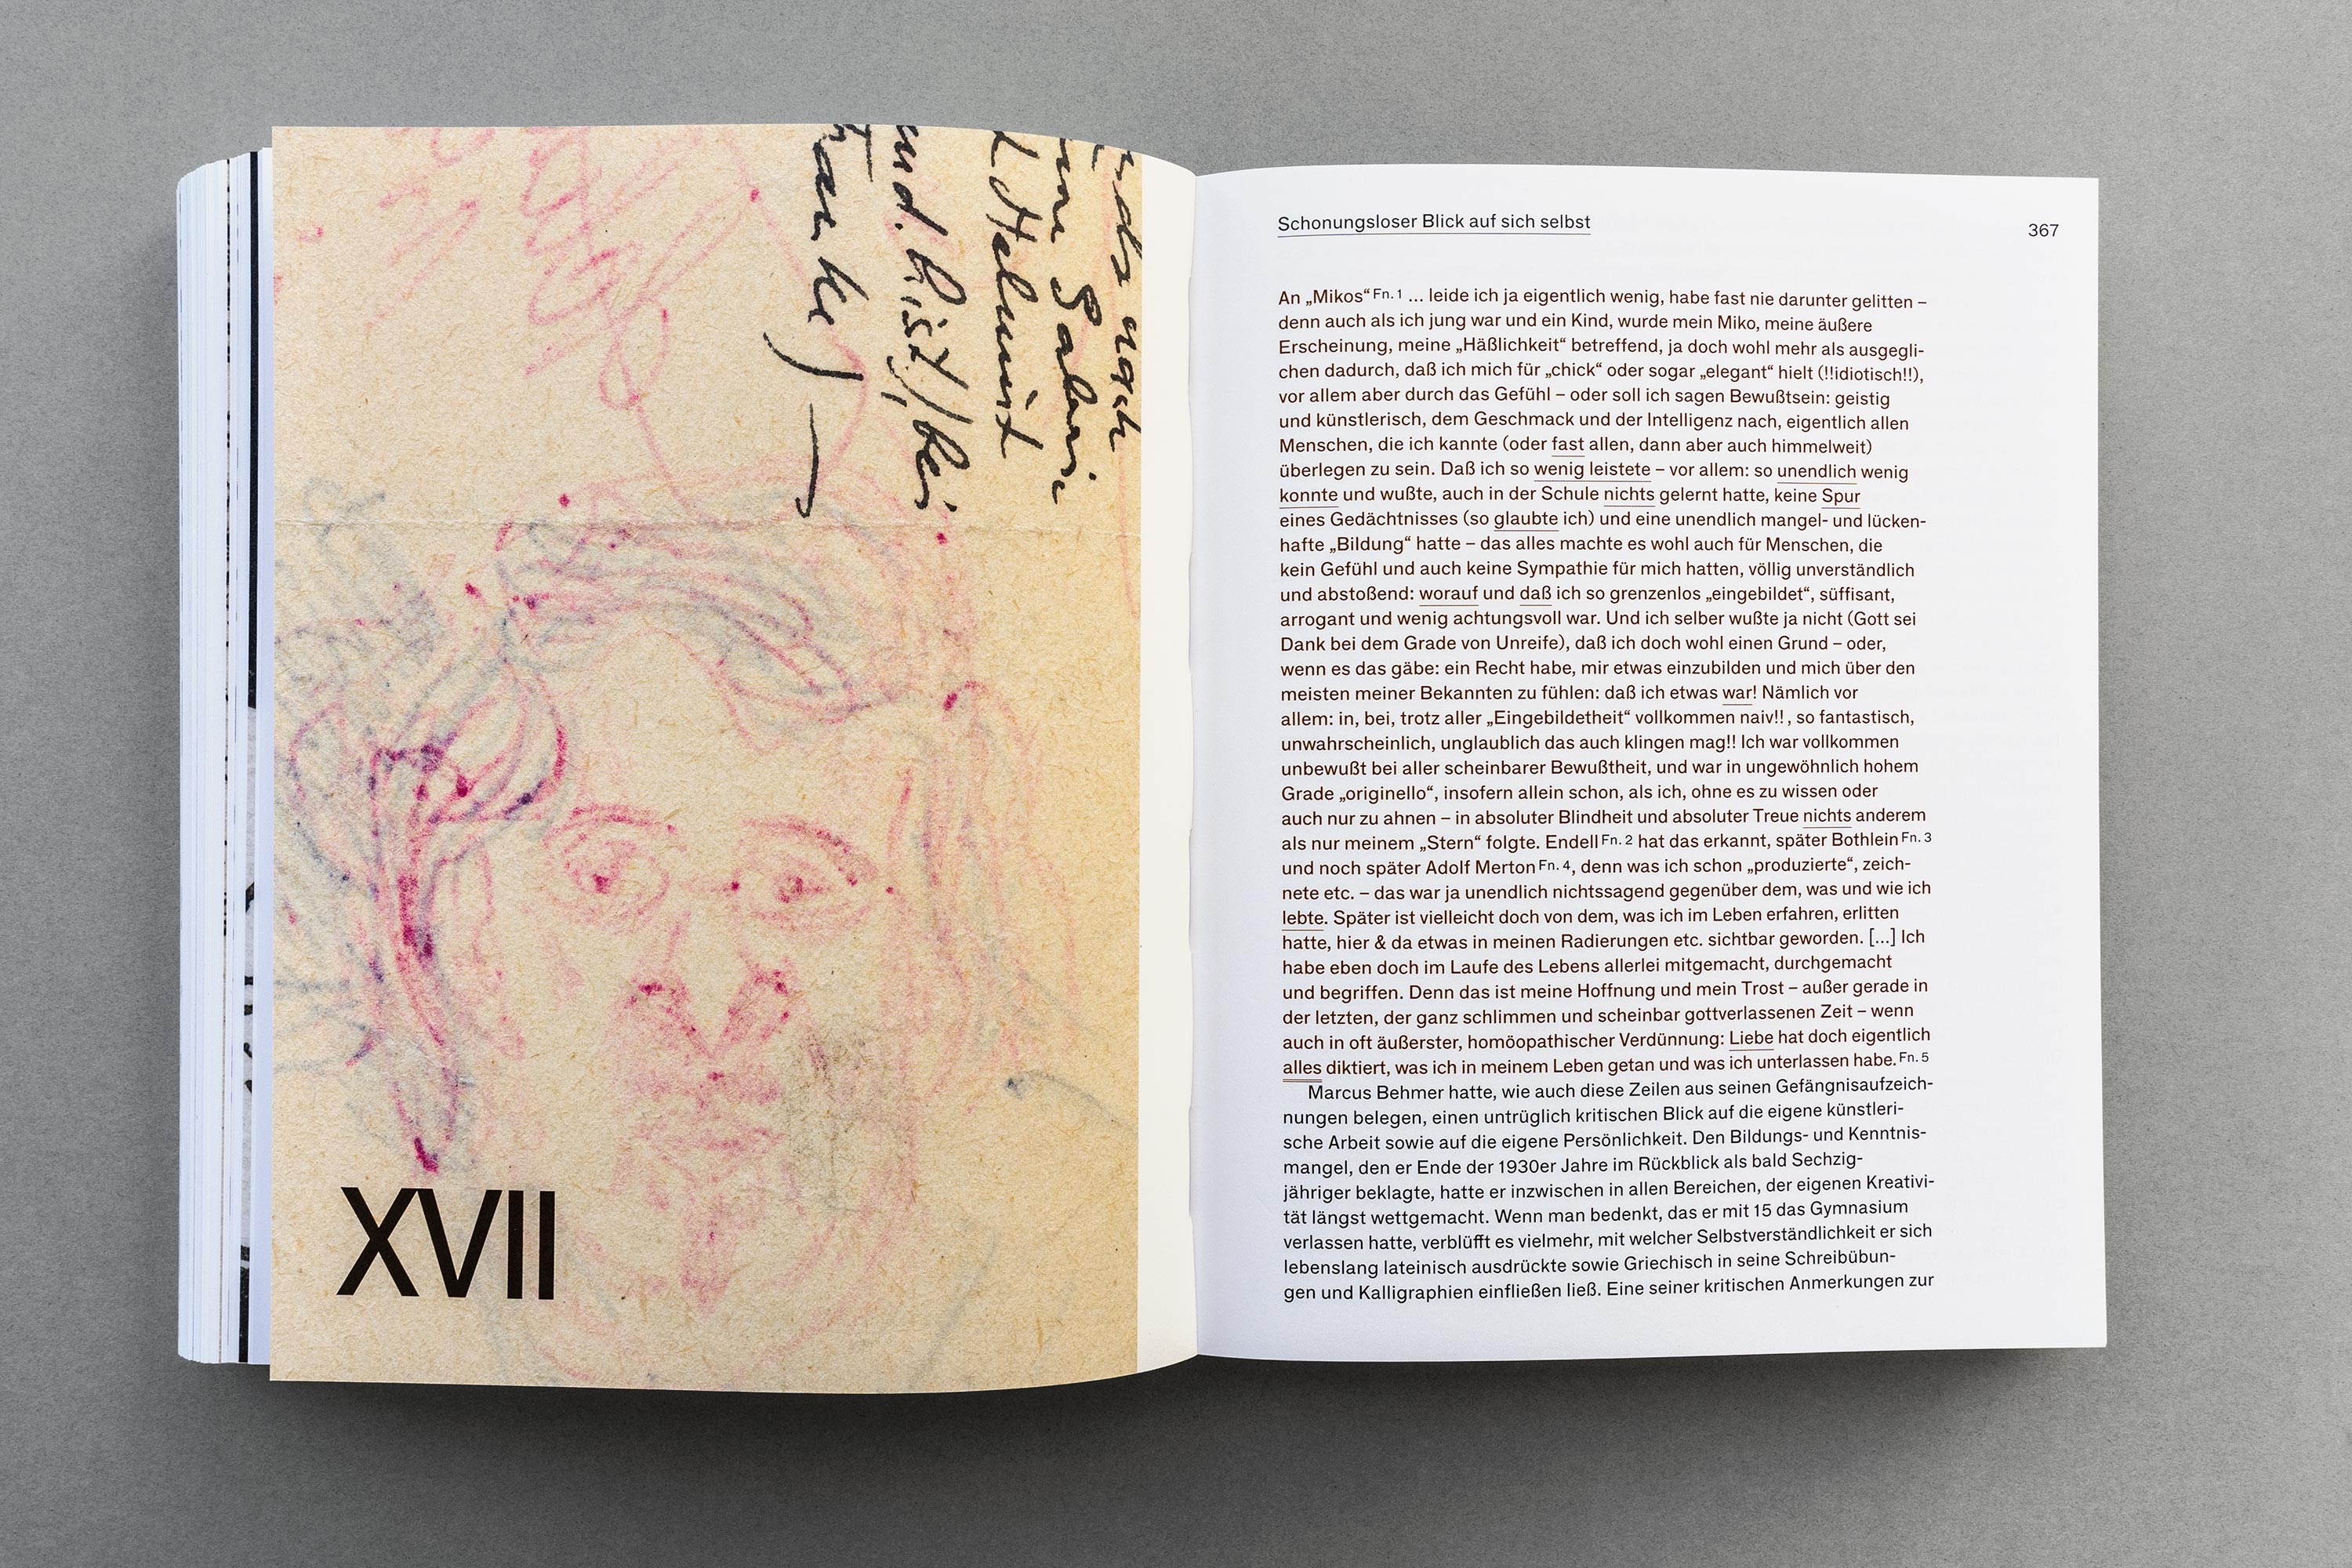 XVII
Schonungsloser Blick auf sich selbst
367
An „Mikos“ Fn. 1 ... leide ich ja eigentlich wenig, habe fast nie darunter gelitten –
denn auch als ich jung war und ein Kind, wurde mein Miko, meine äußere
Erscheinung, meine „Häßlichkeit“ betreffend, ja doch wohl mehr als ausgegli-
chen dadurch, daß ich mich für „chick“ oder sogar „elegant“ hielt (!!idiotisch!!),
vor allem aber durch das Gefühl – oder soll ich sagen Bewußtsein: geistig
und künstlerisch, dem Geschmack und der Intelligenz nach, eigentlich allen
Menschen, die ich kannte (oder fast allen, dann aber auch himmelweit)
überlegen zu sein. Daß ich so wenig leistete – vor allem: so unendlich wenig
konnte und wußte, auch in der Schule nichts gelernt hatte, keine Spur
eines Gedächtnisses (so glaubte ich) und eine unendlich mangel- und lücken-
hafte „Bildung“ hatte – das alles machte es wohl auch für Menschen, die
kein Gefühl und auch keine Sympathie für mich hatten, völlig unverständlich
und abstoßend: worauf und daß ich so grenzenlos „eingebildet“, süffisant,
arrogant und wenig achtungsvoll war. Und ich selber wußte ja nicht (Gott sei
Dank bei dem Grade von Unreife), daß ich doch wohl einen Grund – oder,
wenn es das gäbe: ein Recht habe, mir etwas einzubilden und mich über den
meisten meiner Bekannten zu fühlen: daß ich etwas war! Nämlich vor
allem: in, bei, trotz aller „Eingebildetheit“ vollkommen naiv!!, so fantastisch,
unwahrscheinlich, unglaublich das auch klingen mag!! Ich war vollkommen
unbewußt bei aller scheinbarer Bewußtheit, und war in ungewöhnlich hohem
Grade „originello“, insofern allein schon, als ich, ohne es zu wissen oder
auch nur zu ahnen – in absoluter Blindheit und absoluter Treue nichts anderem
als nur meinem „Stern“ folgte. Endell Fn. 2 hat das erkannt, später Bothlein Fn. 3
und noch später Adolf Merton Fn. 4, denn was ich schon „produzierte“, zeich-
nete etc. – das war ja unendlich nichtssagend gegenüber dem, was und wie ich
lebte. Später ist vielleicht doch von dem, was ich im Leben erfahren, erlitten
hatte, hier & da etwas in meinen Radierungen etc. sichtbar geworden. [...] Ich
habe eben doch im Laufe des Lebens allerlei mitgemacht, durchgemacht
und begriffen. Denn das ist meine Hoffnung und mein Trost – außer gerade in
der letzten, der ganz schlimmen und scheinbar gottverlassenen Zeit – wenn
auch in oft äußerster, homöopathischer Verdünnung: Liebe hat doch eigentlich
alles diktiert, was ich in meinem Leben getan und was ich unterlassen habe. Fn. 5
Marcus Behmer hatte, wie auch diese Zeilen aus seinen Gefängnisaufzeich-
nungen belegen, einen untrüglich kritischen Blick auf die eigene künstleri-
sche Arbeit sowie auf die eigene Persönlichkeit. Den Bildungs- und Kenntnis-
mangel, den er Ende der 1930er Jahre im Rückblick als bald Sechzig-
jähriger beklagte, hatte er inzwischen in allen Bereichen, der eigenen Kreativi-
tät längst wettgemacht. Wenn man bedenkt, das er mit 15 das Gymnasium
verlassen hatte, verblüfft es vielmehr, mit welcher Selbstverständlichkeit er sich
lebenslang lateinisch ausdrückte sowie Griechisch in seine Schreibübun-
gen und Kalligraphien einfließen ließ. Eine seiner kritischen Anmerkungen zur